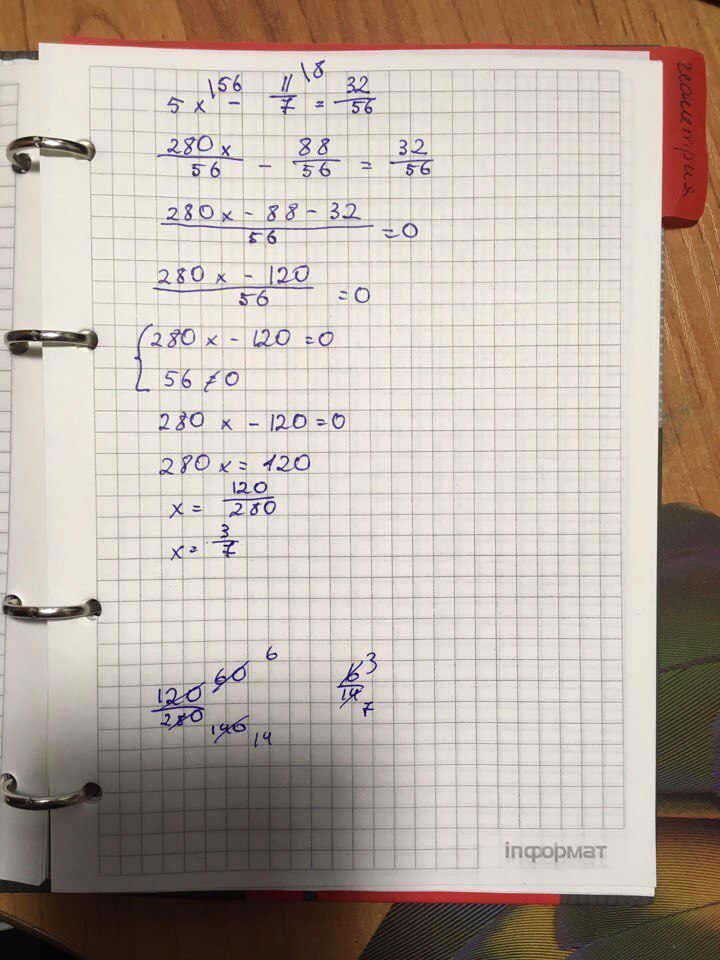 5x \56 - 11/7 \8 = 32/56
280x/56 - 88/56 = 32/56
280x - 88 - 32/56 = 0
280x - 120/56 = 0
{280x - 120 = 0
56 ≠ 0
280x - 120 = 0
280x = 120
x = 120/280
x = 3/7
120/280 60/140 6/14
6/14 3/7
inформат
геометрия